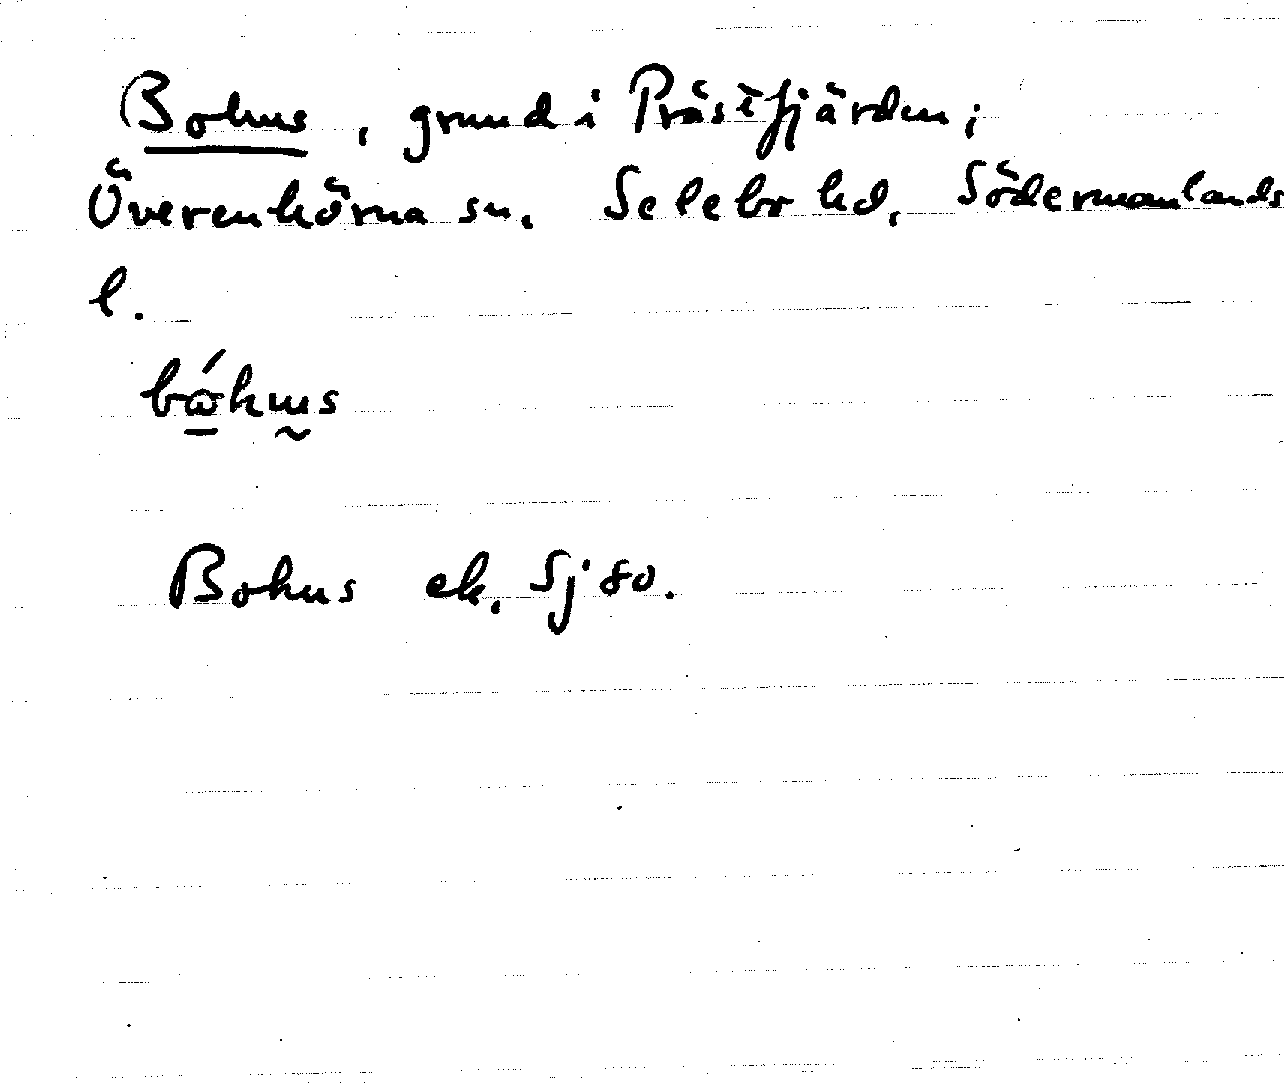 Bohus, grund i Prästfjärden;
Överenhörna sn. Selebo hd, Södermanlands
l.
Bohus ek. Sj 80.